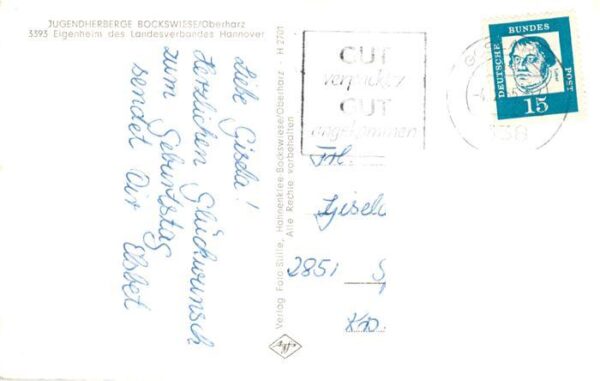 JUGENDHERBERGE BOCKSWIESE/Oberharz
3393 Eigenheim des Landesverbandes Hannover
Liebe Gisela!
Herzlichen Glückwunsch
zum Geburtstag
sendet Dir Elsbet
Verlag Foto Stille, Hahnenklee Bockswiese/Oberharz - H 2701
Alle Rechte vorbehalten
Agfa
GUT
verpackt
GUT
angekommen
DEUTSCHE BUNDES POST
15
338
Frl
Gisel
2851 S